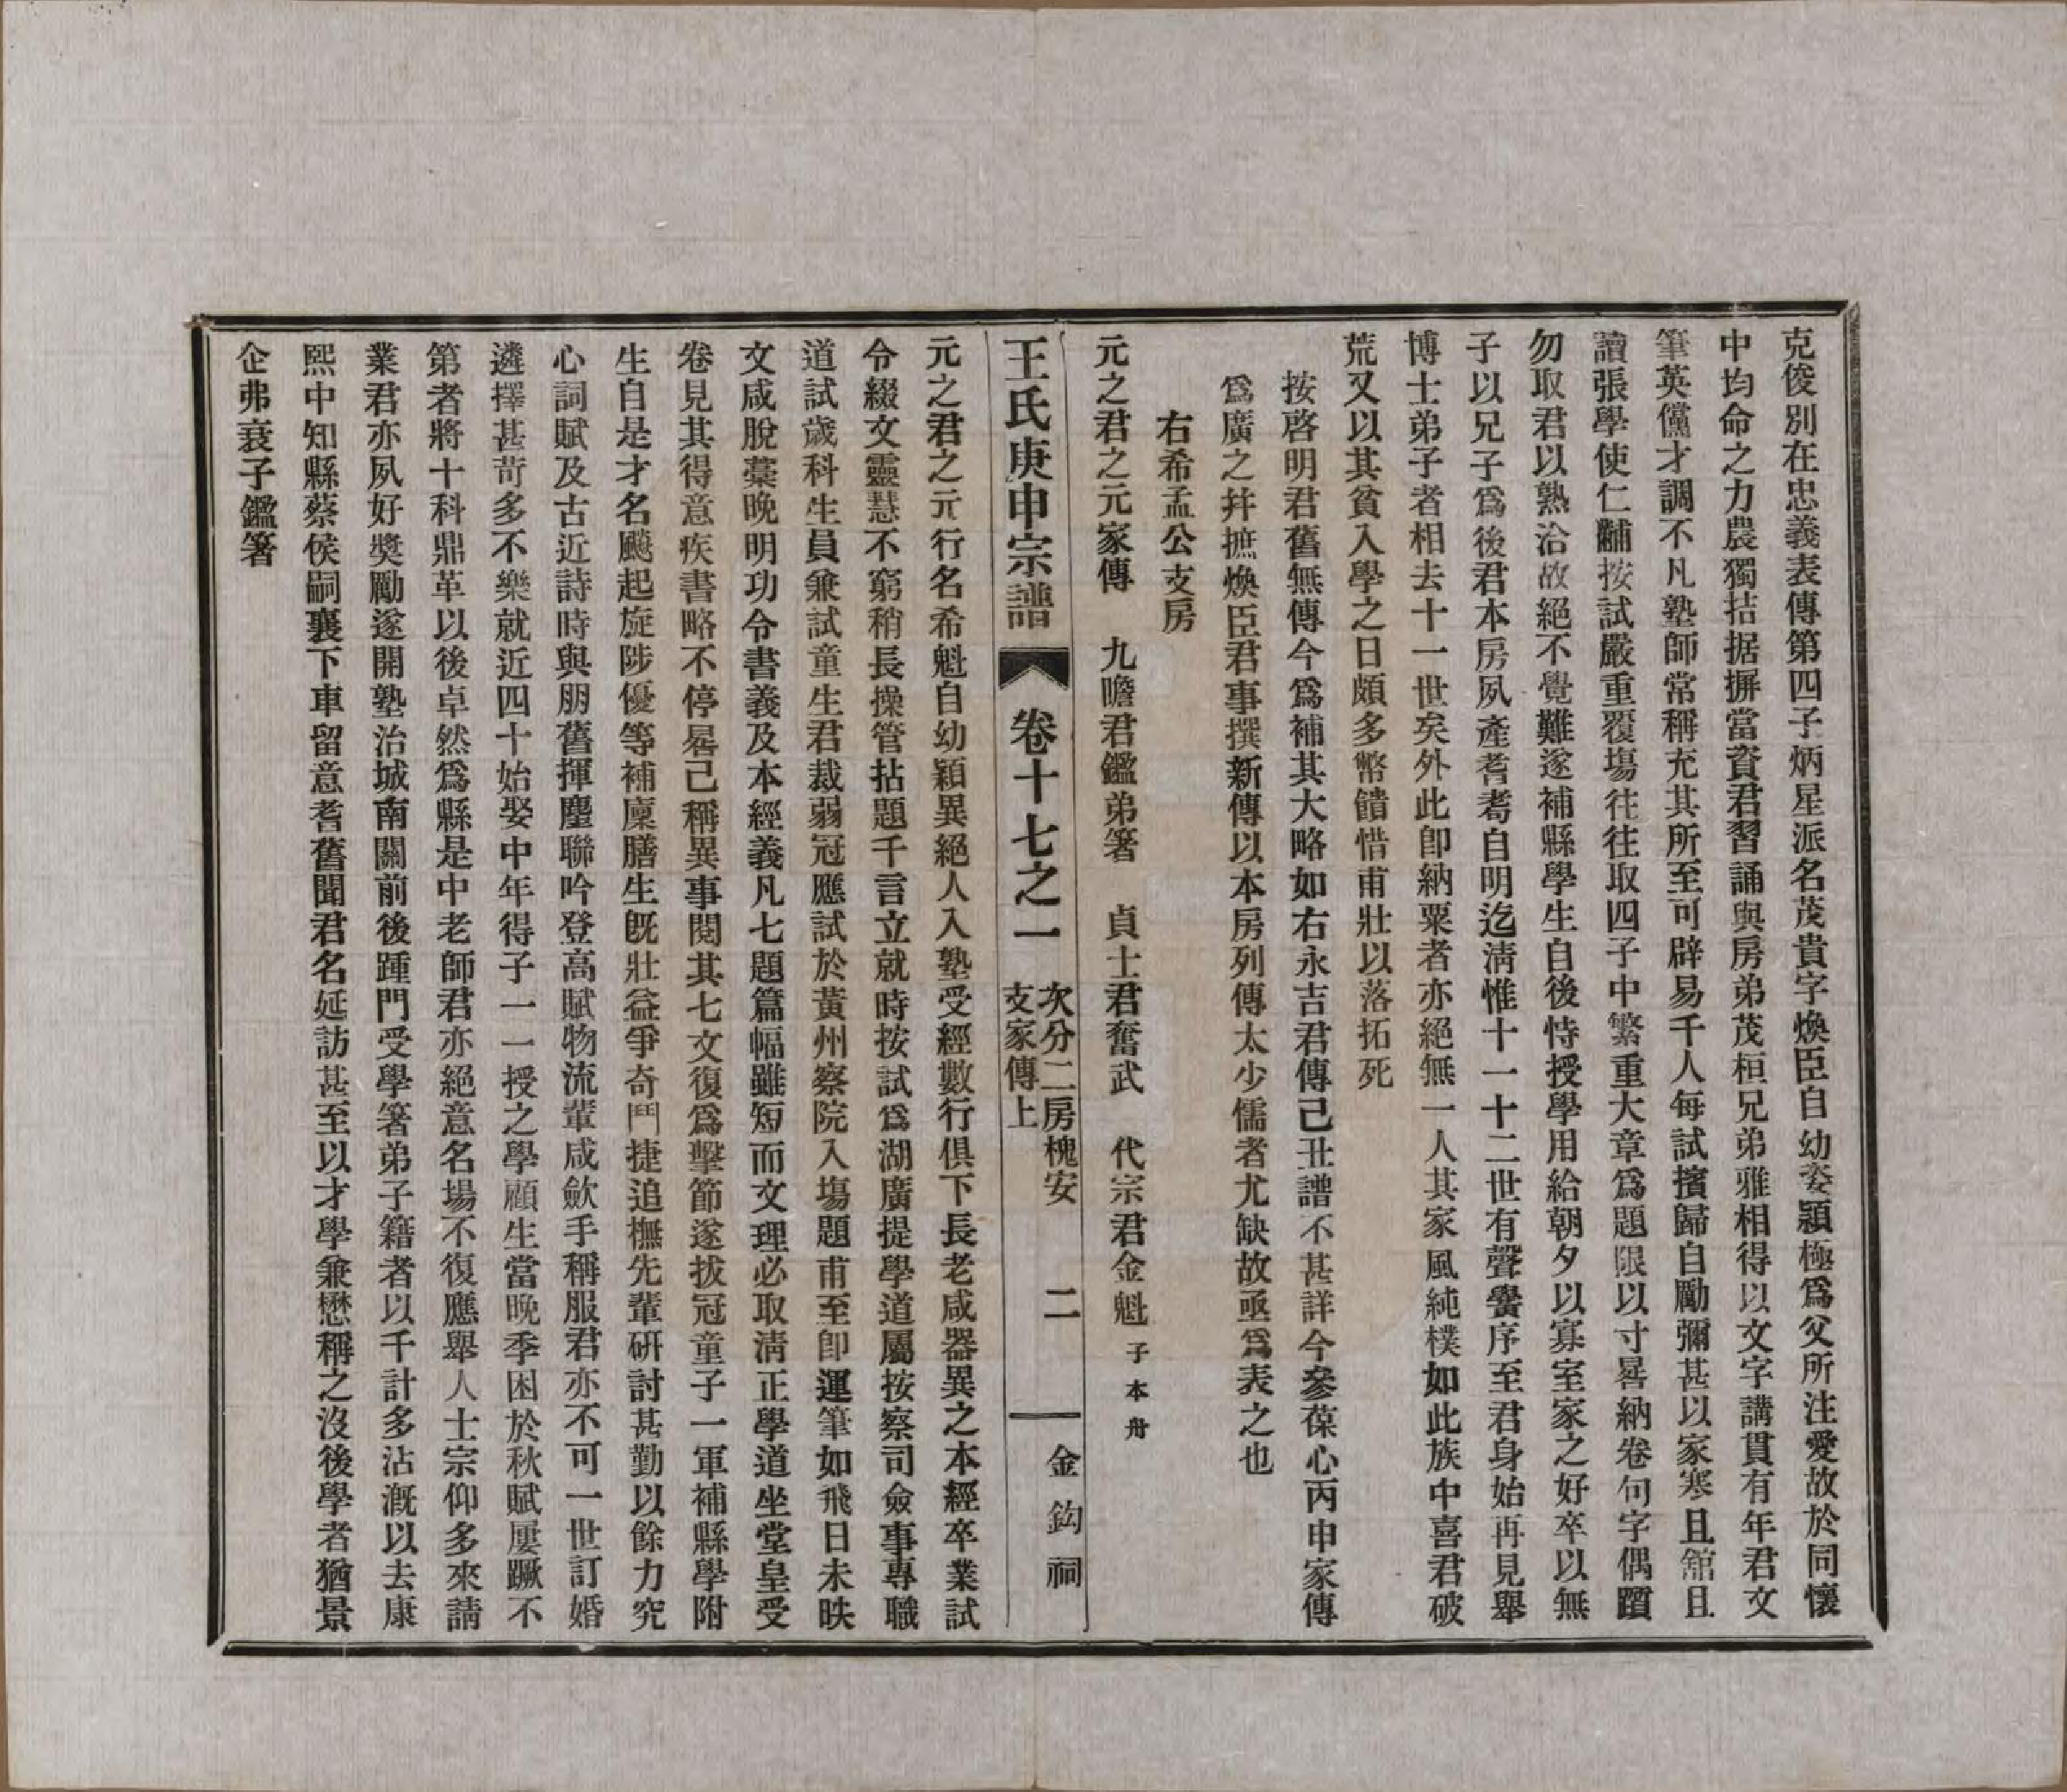 克俊別在忠義表傳第四子炳星派名茂貴字煥臣自幼姿穎極爲父所注愛故於同懷
中均命之力農獨拮据摒當資君習誦與房弟茂桓兄弟雅相得以文字講貫有年君文
筆英儻才調不凡塾師常稱充其所至可辟易千人每試擯歸自勵彌甚以家寒且舘且
讀張學使仁黼按試嚴重覆塲往往取四子中繁重大章爲題限以寸晷納卷句字偶躓
勿取君以熟洽故絕不覺難遂補縣學生自後恃授學用給朝夕以寡室家之好卒以無
子以兄子爲後君本房夙產耆耇自明迄淸惟十一十二世有聲黌序至君身始再見舉
博士弟子者相去十一世矣外此卽納粟者亦絕無一人其家風純樸如此族中喜君破
荒又以其貧入學之日頗多幣饋惜甫壯以落拓死
按啓明君舊無傳今爲補其大略如右永吉君傳己丑譜不甚詳今參葆心丙申家傳
爲廣之幷摭煥臣君事撰新傳以本房列傳太少儒者尤缺故亟爲表之也
右希孟公支房
元之君之元家傳 九瞻君鑑弟箸 貞士君奮武 代宗君金魁 子本舟
王氏庚申宗譜 卷十七之一 次分二房槐安支家傳上 二 金鈎祠
元之君之元行名希魁自幼穎異絕人入塾受經數行俱下長老咸器異之本經卒業試
令綴文靈慧不窮稍長操管拈題千言立就時按試爲湖廣提學道屬按察司僉事專職
道試歲科生員兼試童生君裁弱冠應試於黃州察院入塲題甫至卽運筆如飛日未昳
文咸脫藁晚明功令書義及本經義凡七題篇幅雖短而文理必取淸正學道坐堂皇受
卷見其得意疾書略不停晷己稱異事閱其七文復爲擊節遂拔冠童子一軍補縣學附
生自是才名颷起旋陟優等補廩膳生旣壯益爭奇鬥捷追橅先輩研討甚勤以餘力究
心詞賦及古近詩時與朋舊揮麈聯吟登高賦物流輩咸斂手稱服君亦不可一世訂婚
遴擇甚苛多不樂就近四十始娶中年得子一一授之學顧生當晚季困於秋賦屢蹶不
第者將十科鼎革以後卓然爲縣是中老師君亦絕意名場不復應舉人士宗仰多來請
業君亦夙好奬勵遂開塾治城南關前後踵門受學箸弟子籍者以千計多沾漑以去康
熙中知縣蔡侯嗣襄下車留意耆舊聞君名延訪甚至以才學兼懋稱之沒後學者猶景
企弗衰子鑑箸